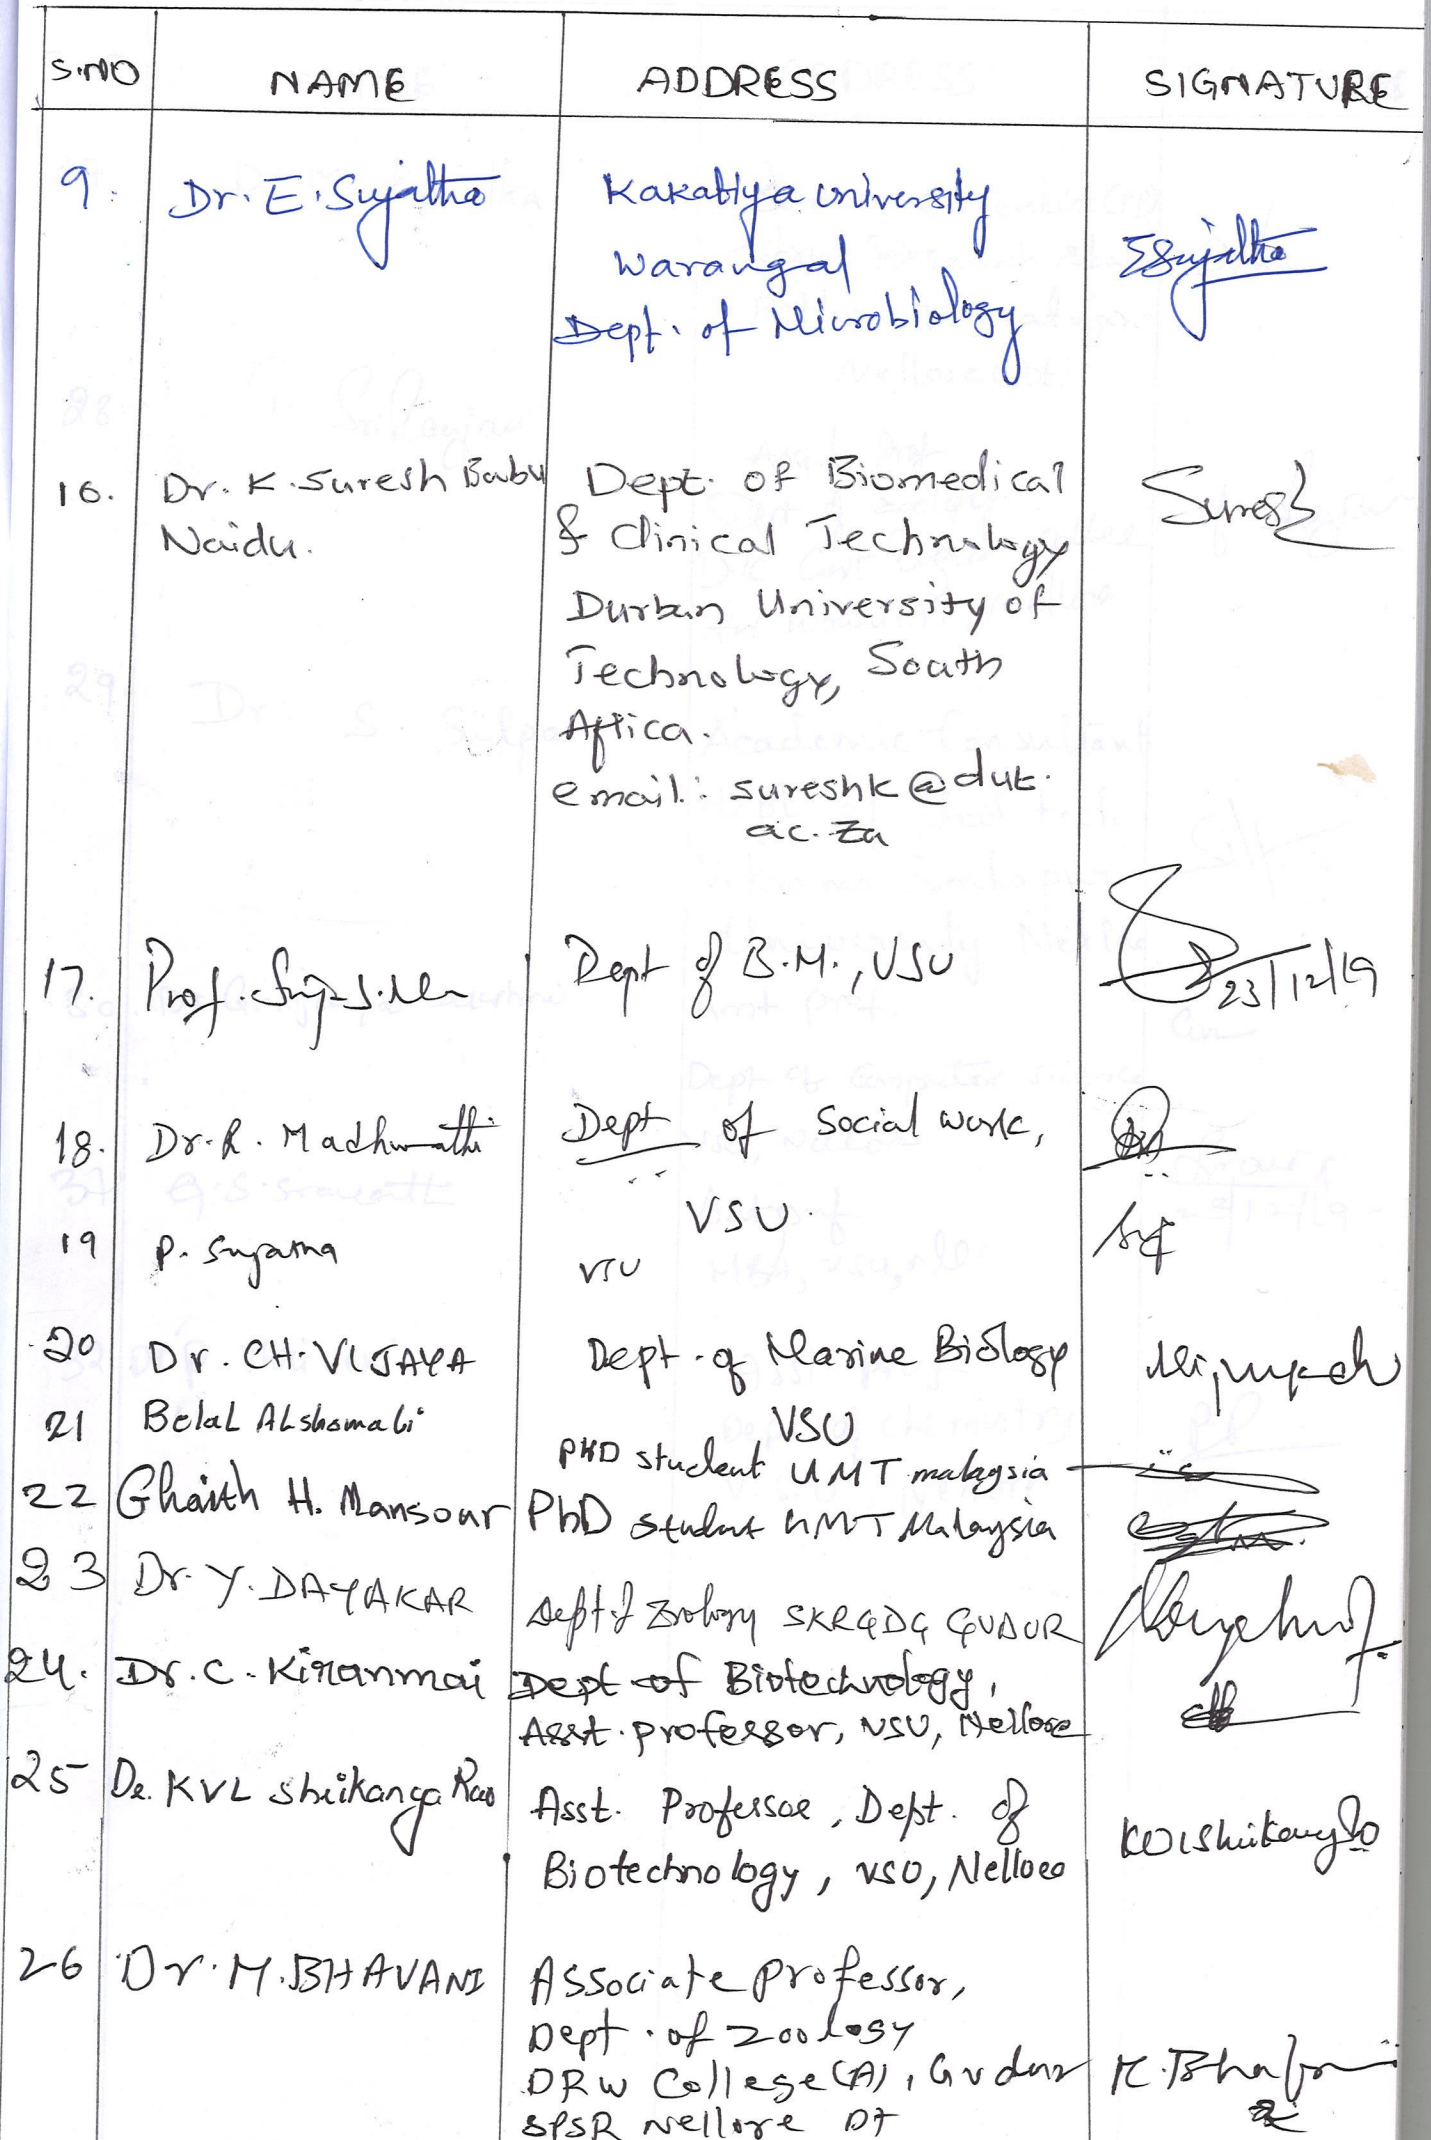 S.NO NAME ADDRESS SIGNATURE
9. Dr. E. Sujatha Kakatiya University
Warangal
Dept. of Microbiology
ESujatha
16. Dr. K. Suresh Babu
Naidu.
Dept. of Biomedical
& Clinical Technology
Durban University of
Technology, South
Africa.
email: sureshk@dut.
ac.za
Suresh
17. Prof. Dept of B.M., VSU
23/12/19
18. Dr. R. Madhumathi Dept of Social Work,
VSU.
19 P. Sujatha VSU
20 Dr. CH. VIJAYA Dept. of Marine Biology
VSU
21 Belal ALshomali PHD student UMT malaysia
22 Ghaith H. Mansour PhD student UMT Malaysia
23 Dr. Y. DAYAKAR Dept of Zoology SKRGDC GUDUR
24. Dr. C. Kiranmai Dept of Biotechnology,
Asst. professor, VSU, Nellore
25 Dr. KVL Shrikanya Rao Asst. Professor, Dept. of
Biotechnology, VSU, Nellore
26 Dr. M. BHAVANI Associate professor,
Dept. of Zoology
DRW College (A), Gudur
SPSR Nellore DT